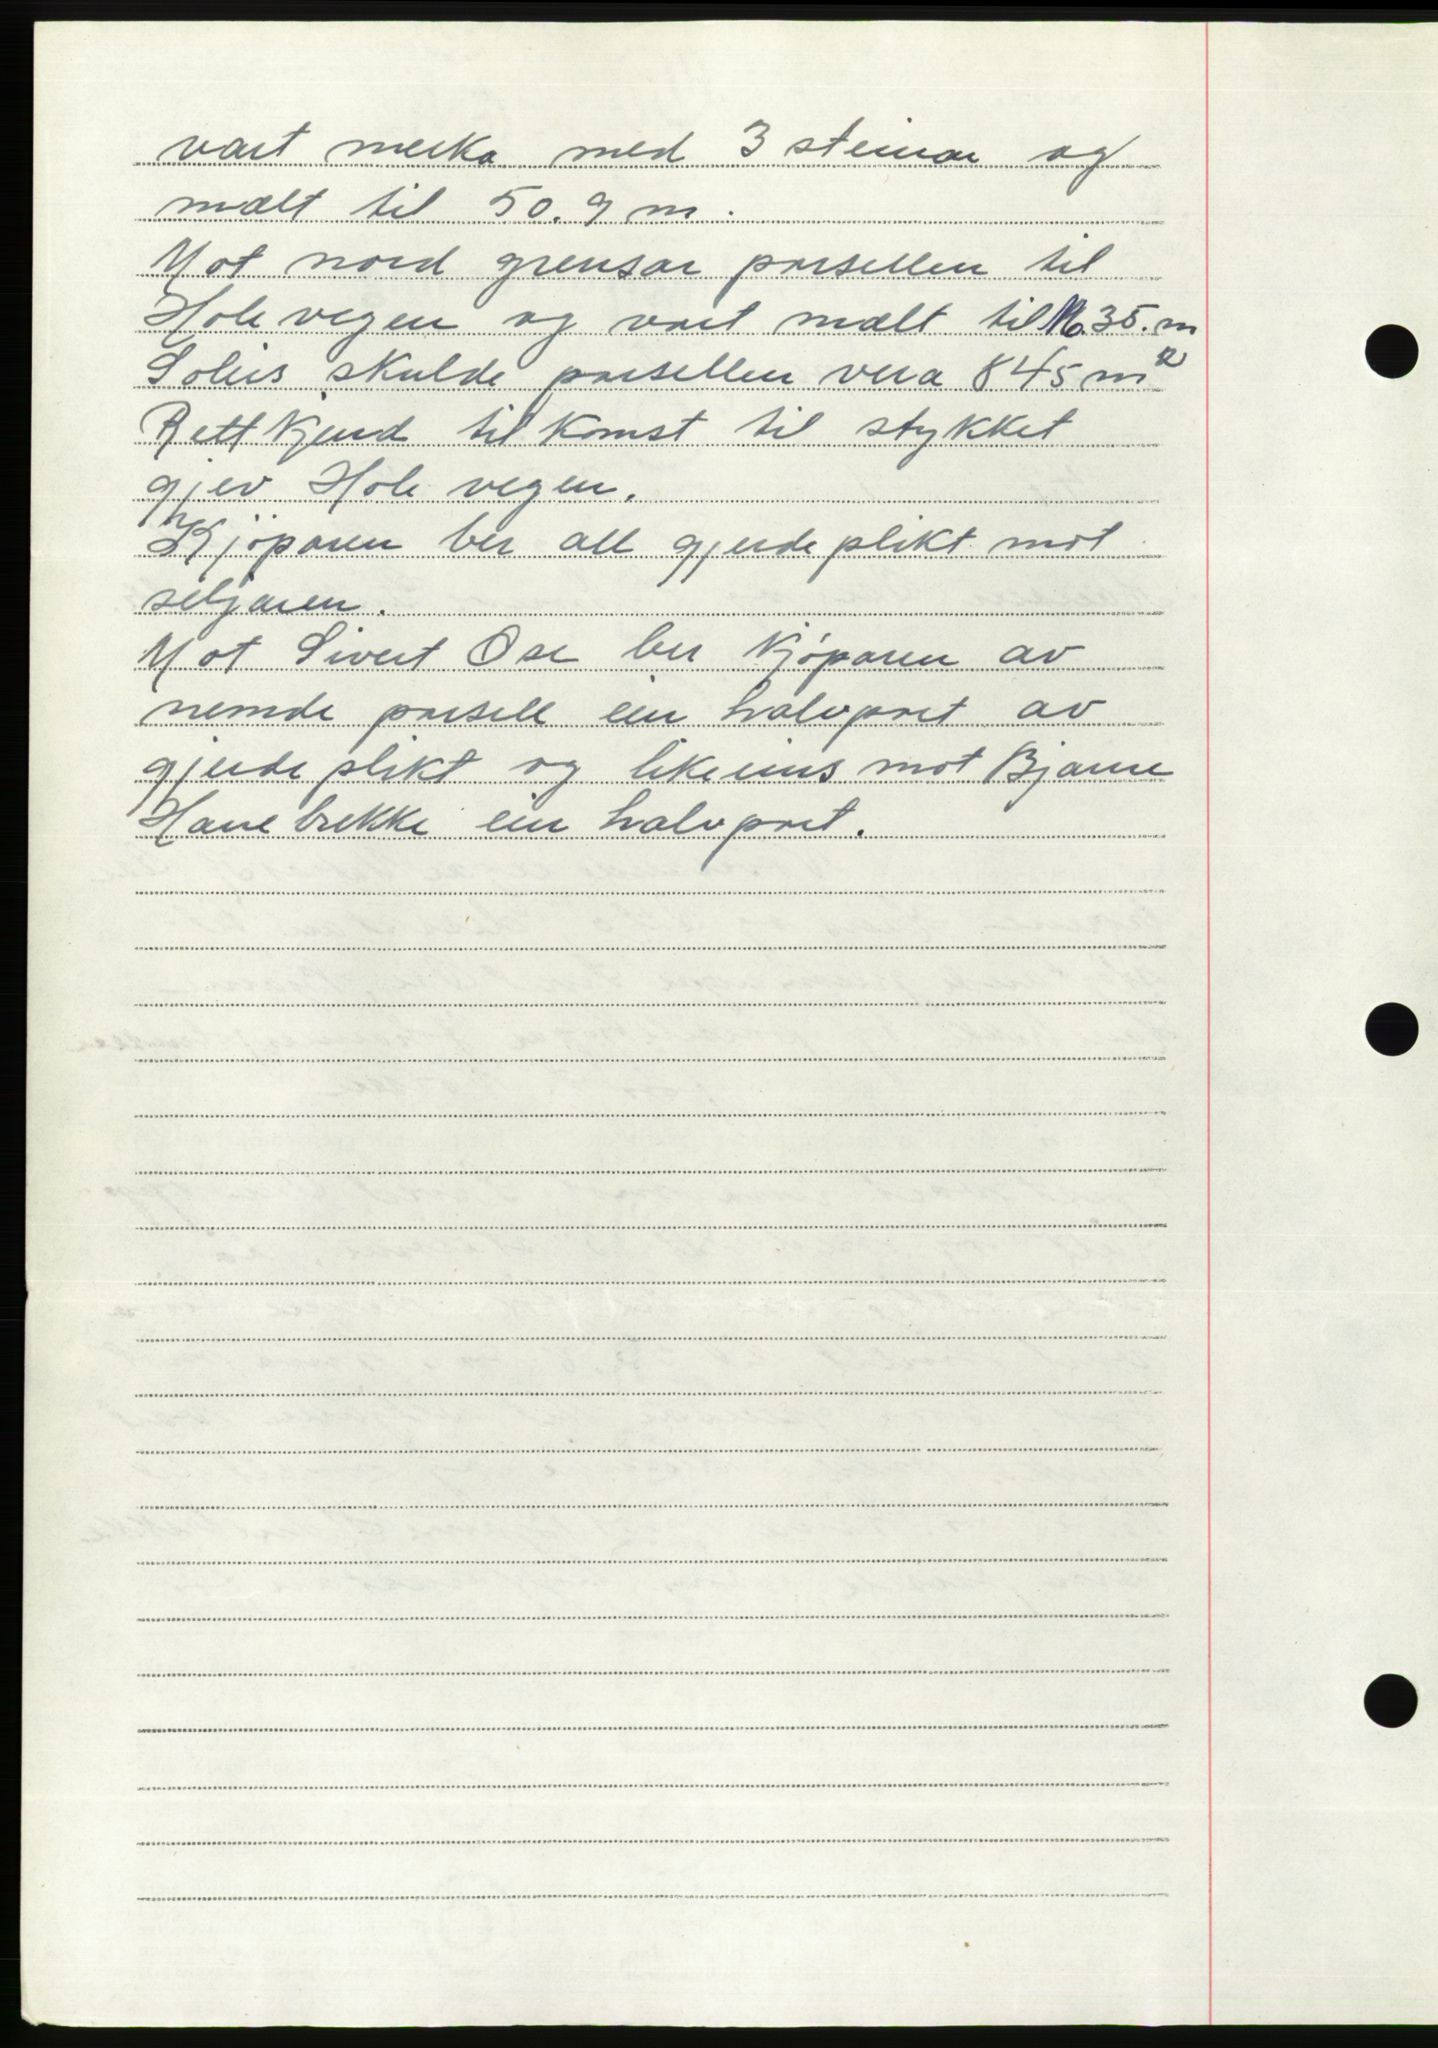 vart merka med 3 steinar og
mælt til 50.9 m.
Mot nord grensar parsellen til
Holevegen og vart mælt til 16.35. m
Soleis skulde parsellen vera 845 m²
Rettkjend tilkomst til stykket
gjev Holevegen.
Kjöparen ber all gjerdeplikt mot
seljaren.
Mot Sivert Ose ber kjöparen av
nemde parsell ein halvpart av
gjerdeplikt og likeeins mot Bjarne
Hanebrekke ein halvpart.